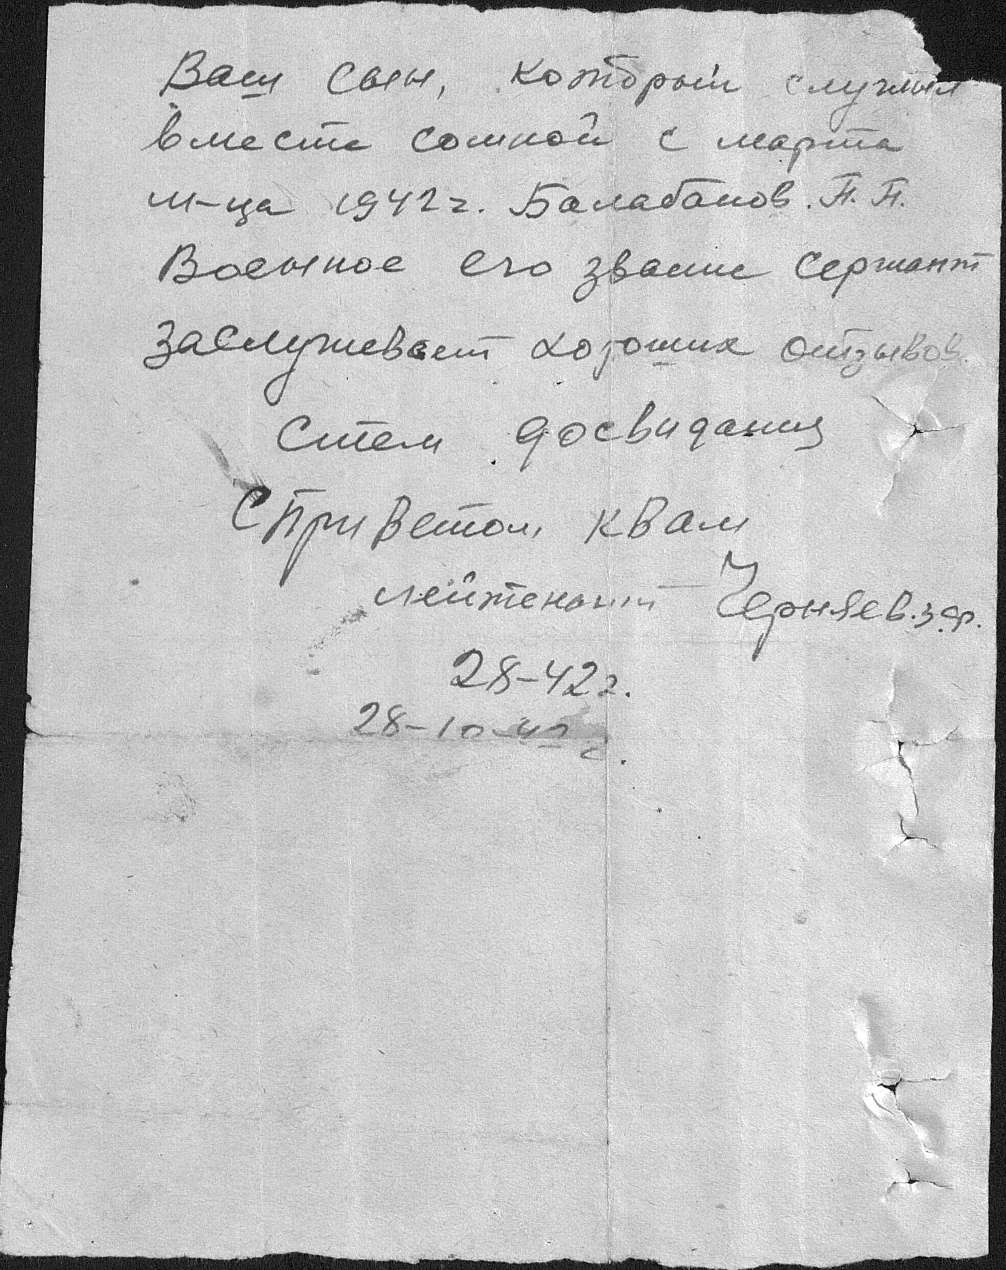 Ваш сын, который служил
вместе сомной с марта
м-ца 1942г. Балабанов. П. П.
Военное его звание Сержант
заслуживает хороших отзывов.
Стем досвидания
С Приветом, квам
лейтенант Черняев.
28-42г.
28-10-42г.